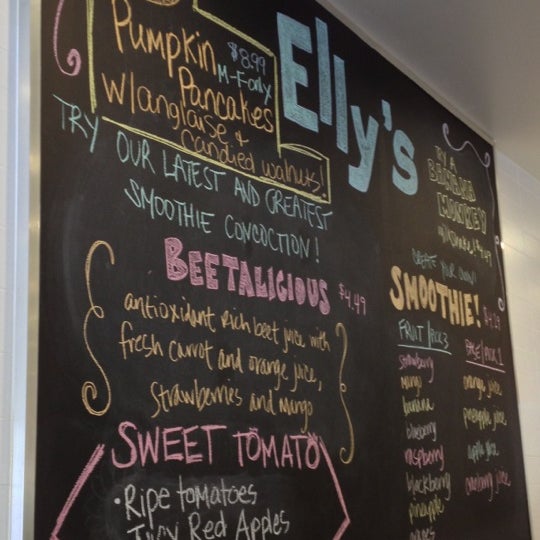 Pumpkin $8.99
M-F only
Pancakes
w/anglaise &
candied walnuts!
Elly's
TRY OUR LATEST AND GREATEST
SMOOTHIE CONCOCTION!
BEETALICIOUS $4.49
antioxidant rich beet juice with
fresh carrot and orange juice,
strawberries and mango
SWEET TÖMATÖ
• Ripe tomatoes
Juicy Red Apples
TRY A
BANANA
MONKEY
CREATE YOUR OWN!
SMOOTHIE! $4.29
FRUIT/PICK 3
strawberry
mango
banana
blueberry
raspberry
blackberry
pineapple
BASE/PICK 1
orange juice
pineapple juice
apple juice
cranberry juice